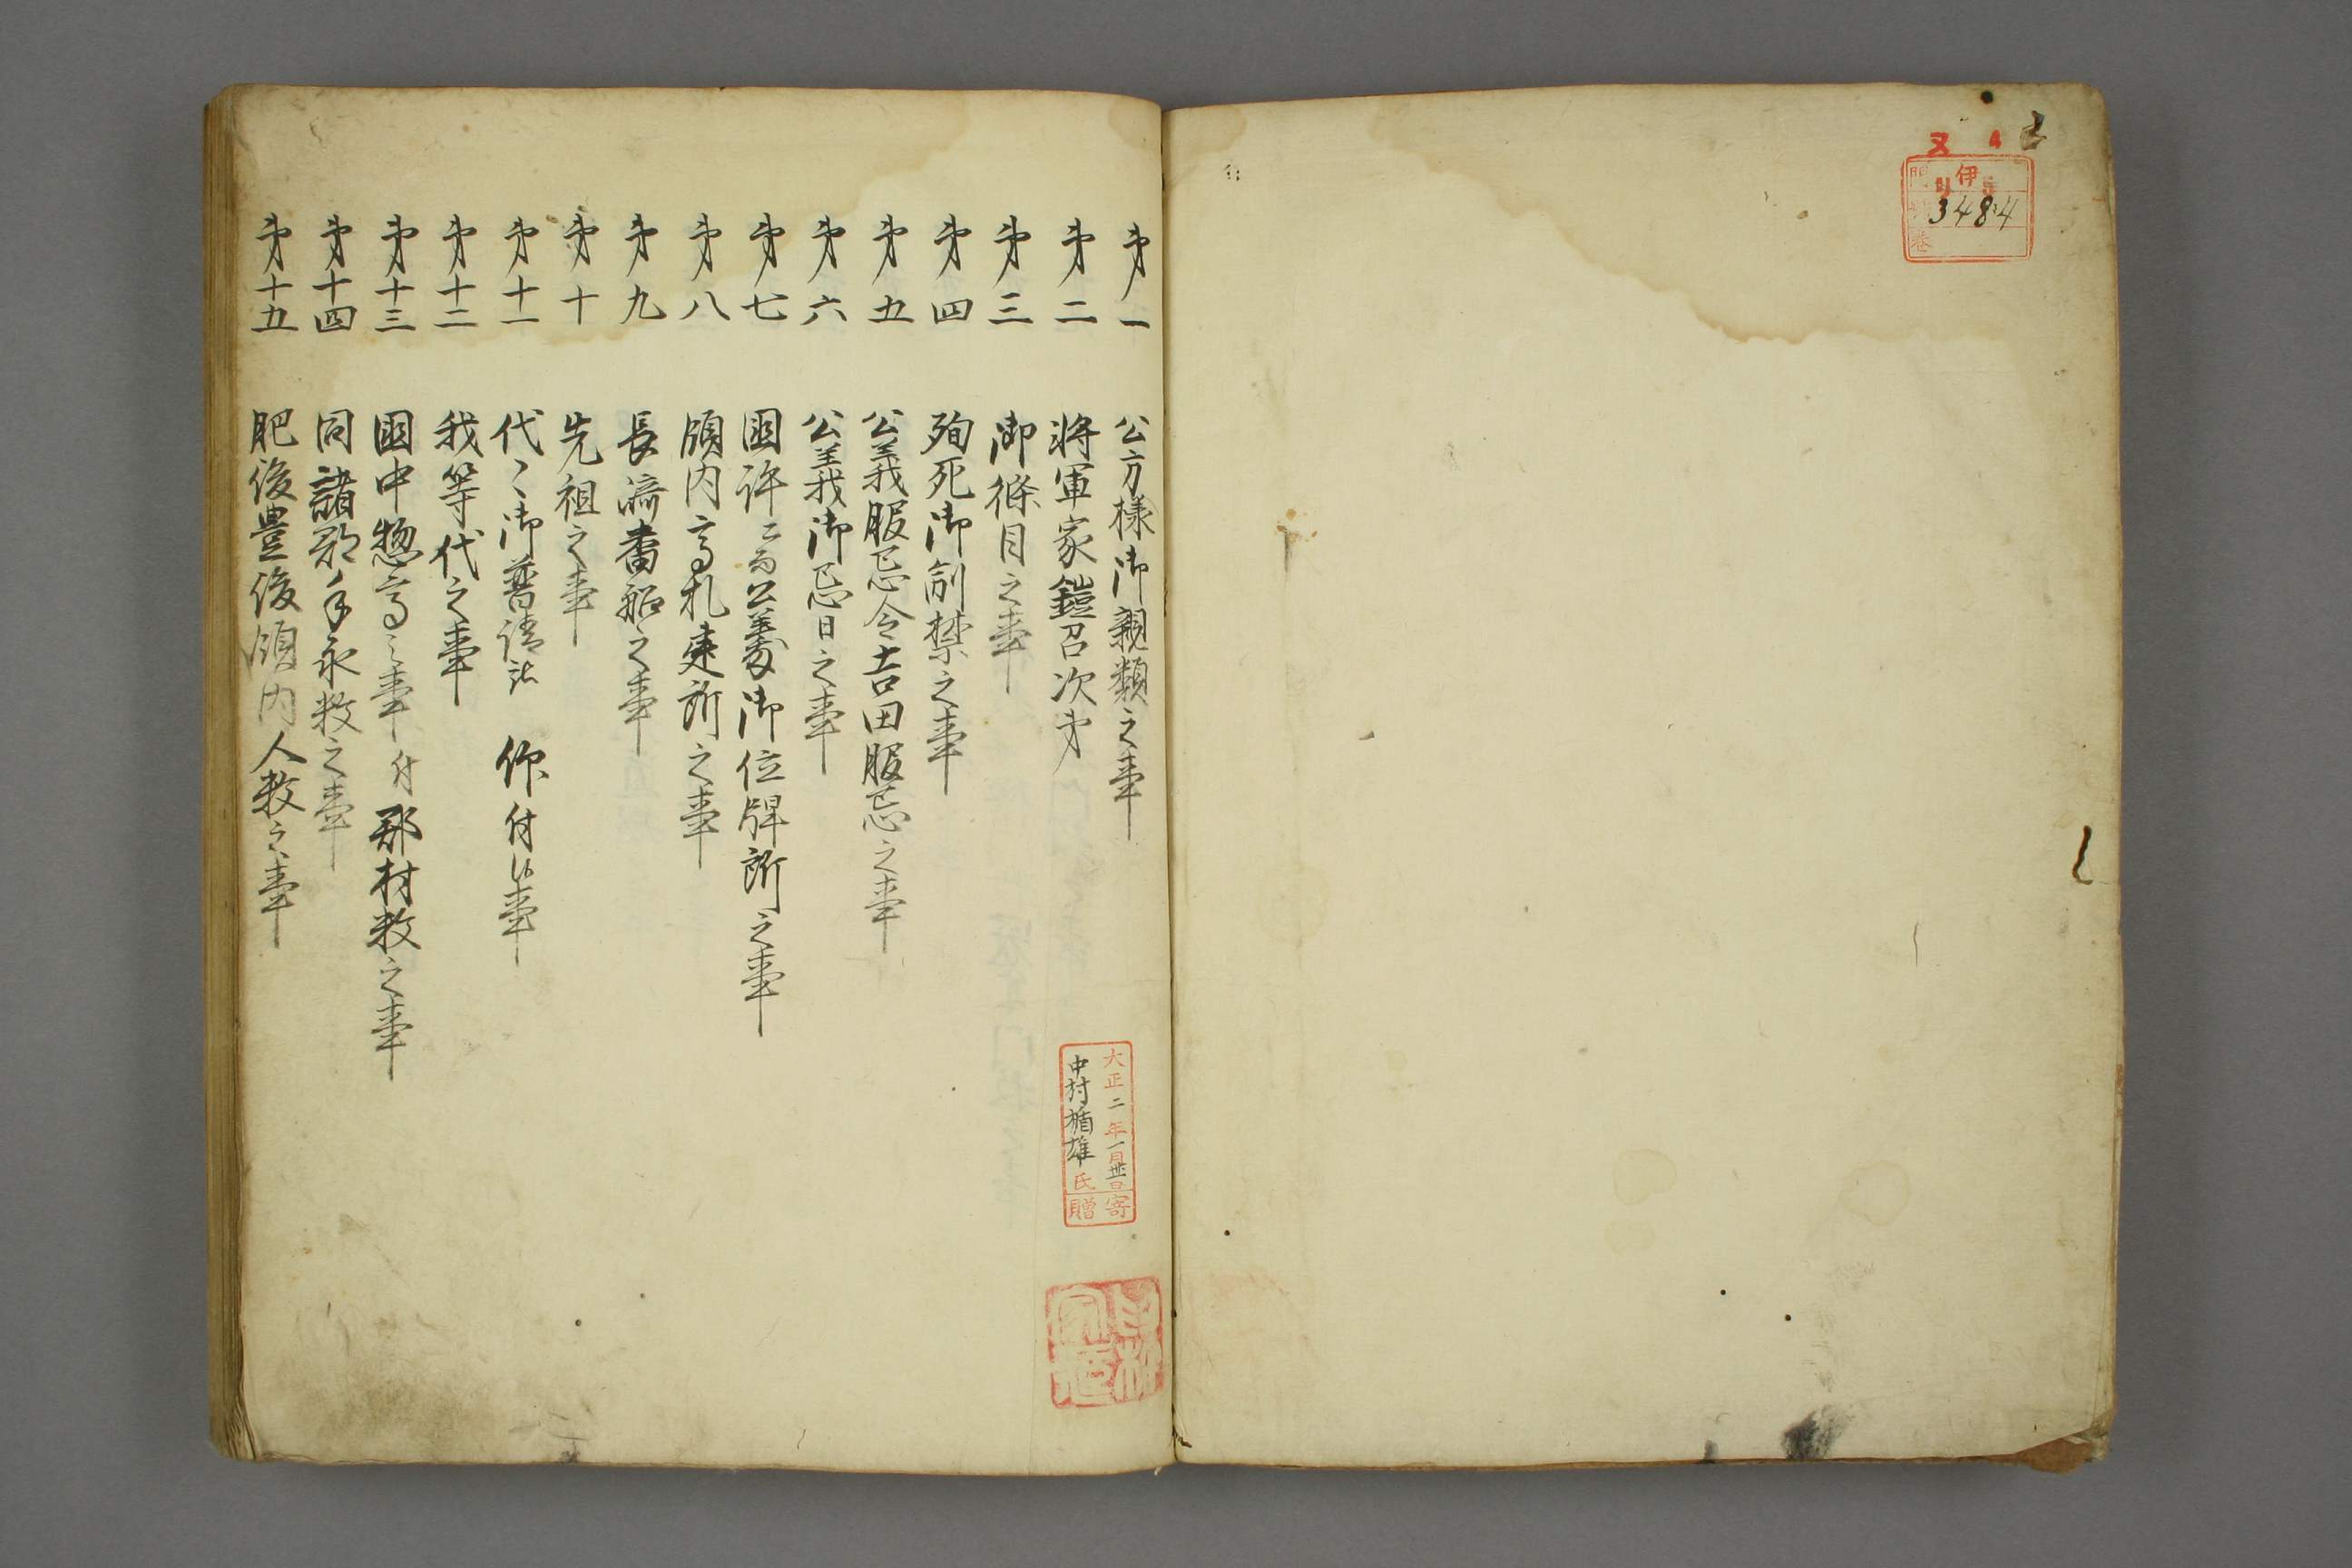 伊
3484
門
巻
第一 公方様御親類之事
第二 将軍家鎧召次第
第三 御條目之事
第四 殉死御制禁之事
第五 公義服忌令吉田服忌之事
第六 公義御忌日之事
第七 国許ニ而公義御位牌所之事
第八 領内高札建所之事
第九 長崎番船之事
第十 先祖之事
第十一 代々御普請被 仰付候事
第十二 我等代之事
第十三 国中惣高之事付郡村数之事
第十四 同諸郡手永数之事
第十五 肥後豊後領内人数之事
大正二年一月廿日寄
中村楯雄氏贈